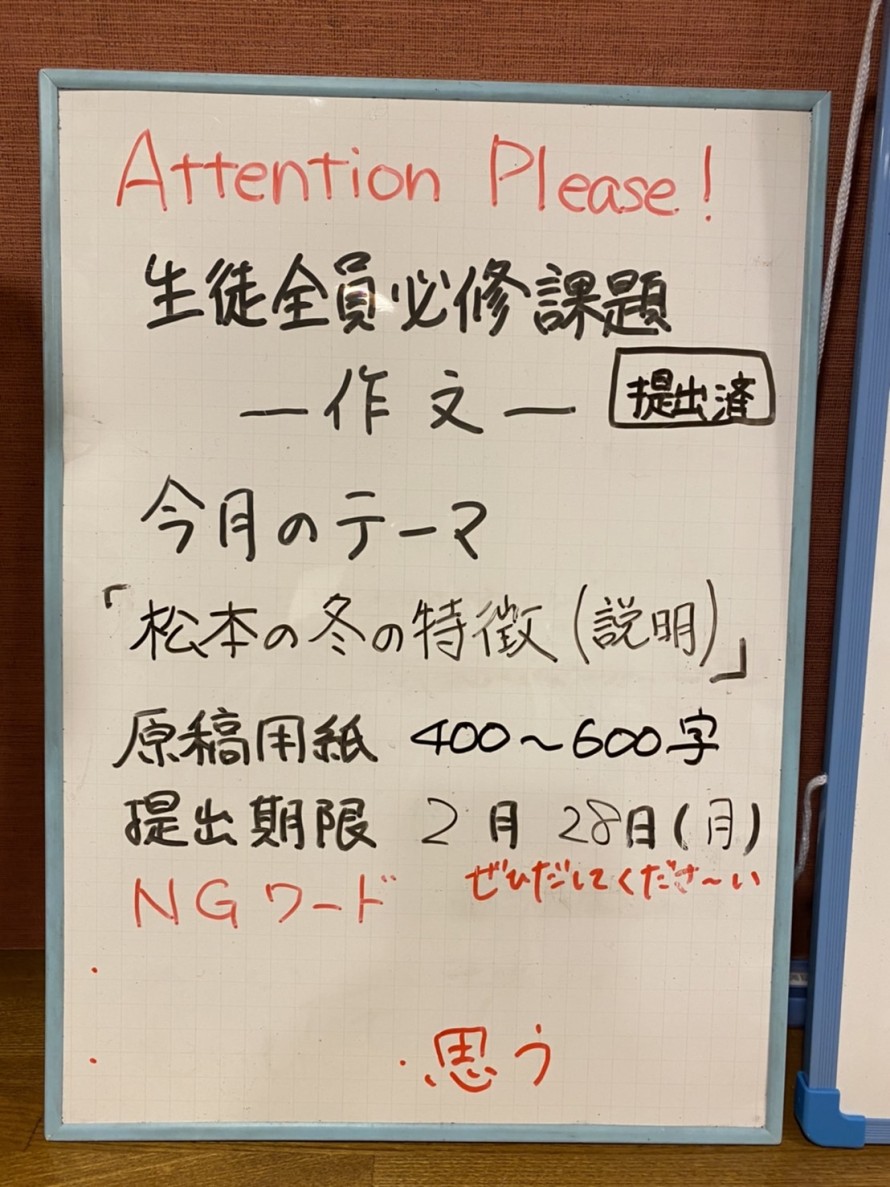 Attention Please!
生徒全員必修課題
―作文― 提出済
今月のテーマ
「松本の冬の特徴(説明)」
原稿用紙 400～600字
提出期限 2月28日(月)
ぜひだしてくださ～い
NGワード
・
・ ・思う